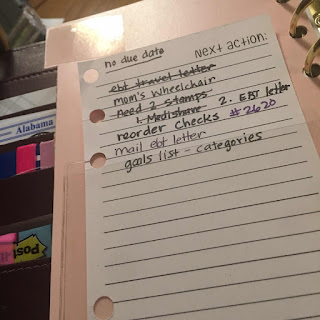 no due date
Next action:
ebt travel letter
mom's wheelchair
Need 2 stamps
1. Medishare 2. EBT letter
reorder checks #2620
mail ebt letter
goals list - categories
Alabama
post